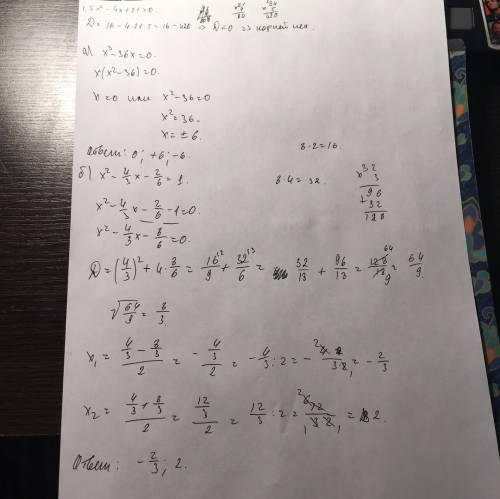 1. 5x² - 4x + 21 > 0
D = 16 - 4·21·5 = 16 - 420 => D < 0 => корней нет.
а) x³ - 36x = 0.
x(x² - 36) = 0.
x = 0 или x² - 36 = 0
x² = 36.
x = ± 6.
Ответ: 0; +6; -6.
8·2 = 16.
б) x² - 4/3 x - 2/6 = 1.
8·4 = 32.
x² - 4/3 x - 2/6 - 1 = 0.
x² - 4/3 x - 8/6 = 0.
D = (4/3)² + 4·8/6 = 16/9 + 32/6 = 32/18 + 96/18 = 128/18 = 64/9.
√64/9 = 8/3.
x₁ = (4/3 - 8/3)/2 = (-4/3)/2 = -4/3 : 2 = = -2/3
x₂ = (4/3 + 8/3)/2 = (12/3)/2 = 12/3 : 2 = = 2.
Ответ: -2/3; 2.